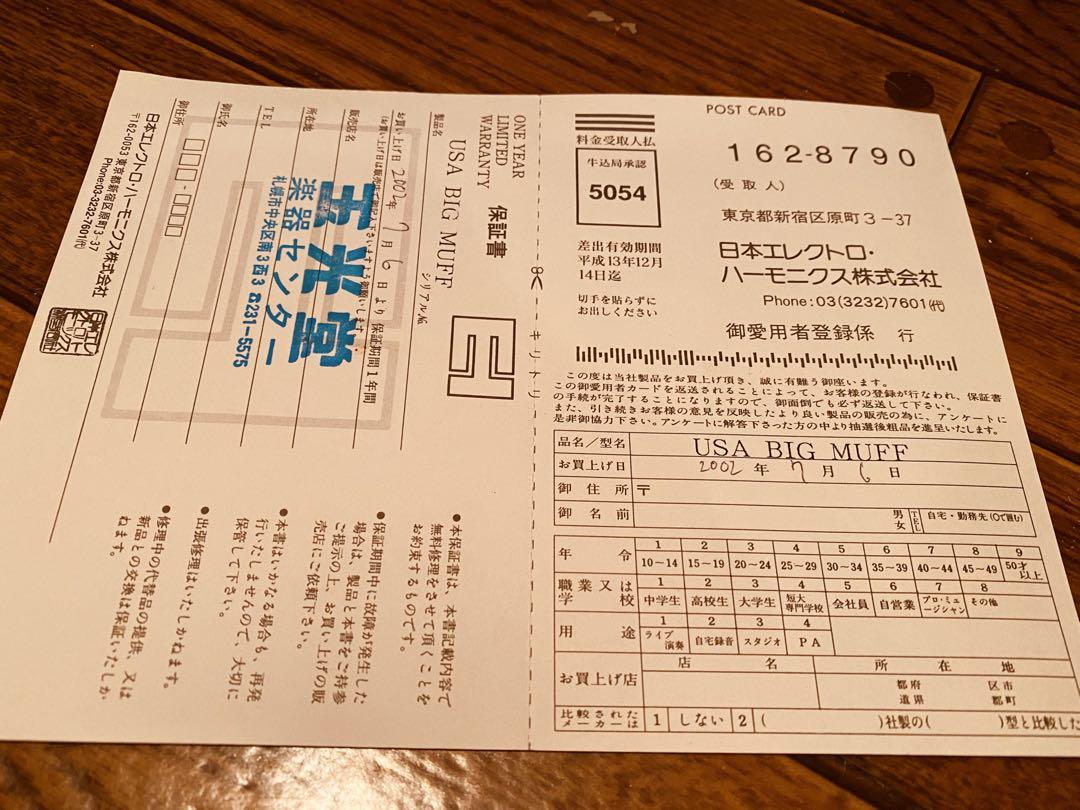 POST CARD
料金受取人払
牛込局承認
5054
差出有効期間
平成13年12月
14日迄
切手を貼らずに
お出しください
162-8790
(受取人)
東京都新宿区原町3-37
日本エレクトロ・
ハーモニクス株式会社
Phone:03(3232)7601(代)
御愛用者登録係 行
この度は当社製品をお買上げ頂き、誠に有難う御座います。
この御愛用者カードを返送されることによって、お客様の登録が行なわれ、保証書
の手続が完了することになりますので、御面倒でも必ず返送して下さい。
また、引き続きお客様の意見を反映したより良い製品の販売の為に、アンケートに
是非御協力下さい。アンケートに解答下さった方の中より抽選後粗品を進呈いたします。
品名/型名 USA BIG MUFF
お買上げ日 2002年 7月 6日
御住所 〒
御名前 男女 TEL 自宅・勤務先(○で囲む)
年令 1 2 3 4 5 6 7 8 9
10~14 15~19 20~24 25~29 30~34 35~39 40~44 45~49 50才以上
職業又は学校 1 2 3 4 5 6 7 8
中学生 高校生 大学生 短大専門学校 会社員 自営業 プロ・ミュージシャン その他
用途 1 2 3 4
ライブ演奏 自宅録音 スタジオ PA
お買上げ店 店名 所在地
都府 区市
道県 郡町
比較されたメーカーは 1 しない 2 ( )社製の( )型と比較した
キリトリ
ONE YEAR
LIMITED
WARRANTY
保証書
製品名
USA BIG MUFF
シリアル№
お買い上げ日 2002年 7月 6日より 保証期間1年間
販売店名
所在地
TEL
御氏名
御住所
玉光堂
楽器センター
札幌市中央区南3西3 ☎231-5575
日本エレクトロ・ハーモニクス株式会社
〒162-0053 東京都新宿区原町3-37
Phone:03-3232-7601(代)
●本保証書は、本書記載内容で
無料修理をさせて頂くことを
お約束するものです。
●保証期間中に故障が発生した
場合は、製品と本書をご持参
ご提示の上、お買い上げの販
売店にご依頼下さい。
●本書はいかなる場合も、再発
行いたしませんので、大切に
保管して下さい。
●出張修理はいたしかねます。
●修理中の代替品の提供、又は
新品との交換は保証いたしか
ねます。